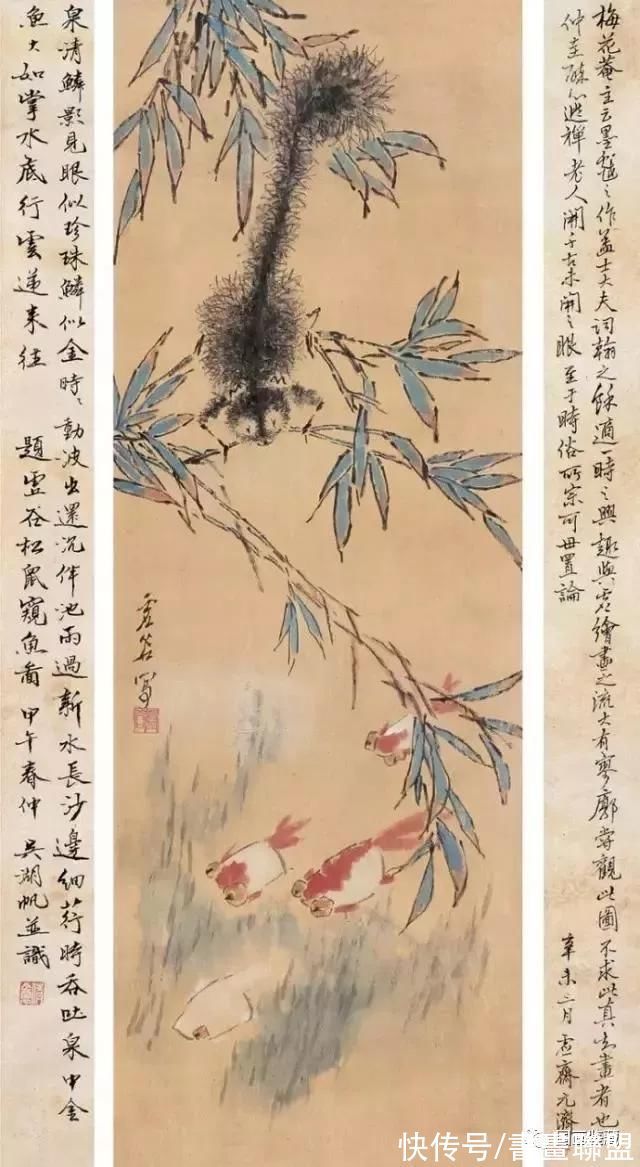 梅花菴主云墨戲之作蓋士大夫詞翰之餘適一時之興趣與夫繪畫之流大有寥廓嘗觀此圖不求此真知畫者也
仲圭 逃禪老人開千古未開之眼至于時俗所宗可毋置論
辛未三月虛齋元濟
虛谷寫
泉清鱗影見眼似珍珠鱗似金時〻動波出還沉伴池雨過新水長沙邊細荇時吞吐泉中金
魚大如掌水底行雲遞来往
題虛谷松鼠窺魚圖 甲午春仲 吳湖帆並識
快传号/書畫聯盟